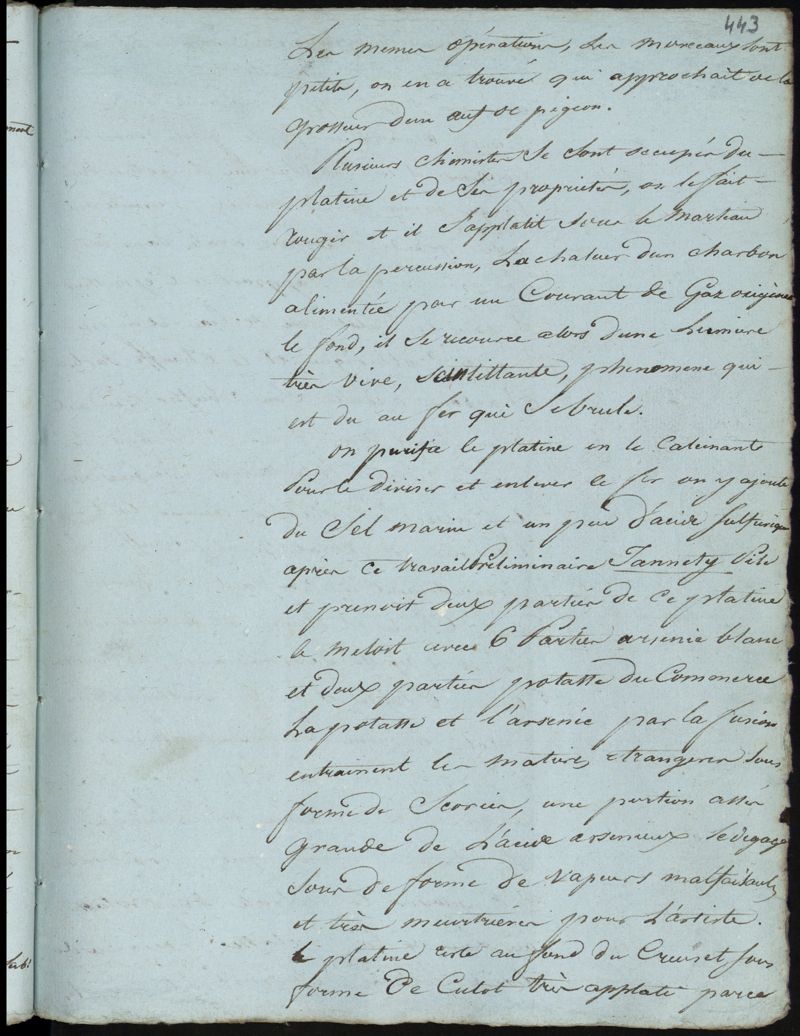 443
Les memes opérations, les morceaux sont
petits, on en a trouvé qui approchait de la
grosseur dun œuf de pigeon.
Plusieurs chimistes se sont occupés du
platine et de ses propriétés, on le fait
rougir et il s'applatit sous le marteau
par la percussion, la chaleur dun charbon
alimentée par un Courant de Gaz oxigène
le fond, il se recouvre alors dune lumiere
très vive, scintillante, phenomene qui
est du au fer qui se brule.
on purifie le platine en le Calcinant
Pour le diviser et enlever le fer on y ajoute
du Sel marin et un peu d'acide sulfurique
après ce travail Préliminaire Jannety Pile
et prenoit deux parties de ce platine
le meloit avec 6 Parties arsenic blanc
et deux parties potasse du Commerce
La potasse et l'arsenic par la fusion
entrainent les matieres etrangeres sous
forme de Scories, une portion assés
grande de L'acide arsenieux se degage
Sous de forme de vapeurs malfaisantes
et très meurtrières pour L'artiste.
le platine reste au fond du Creuset sous
forme De Culot très applati parce